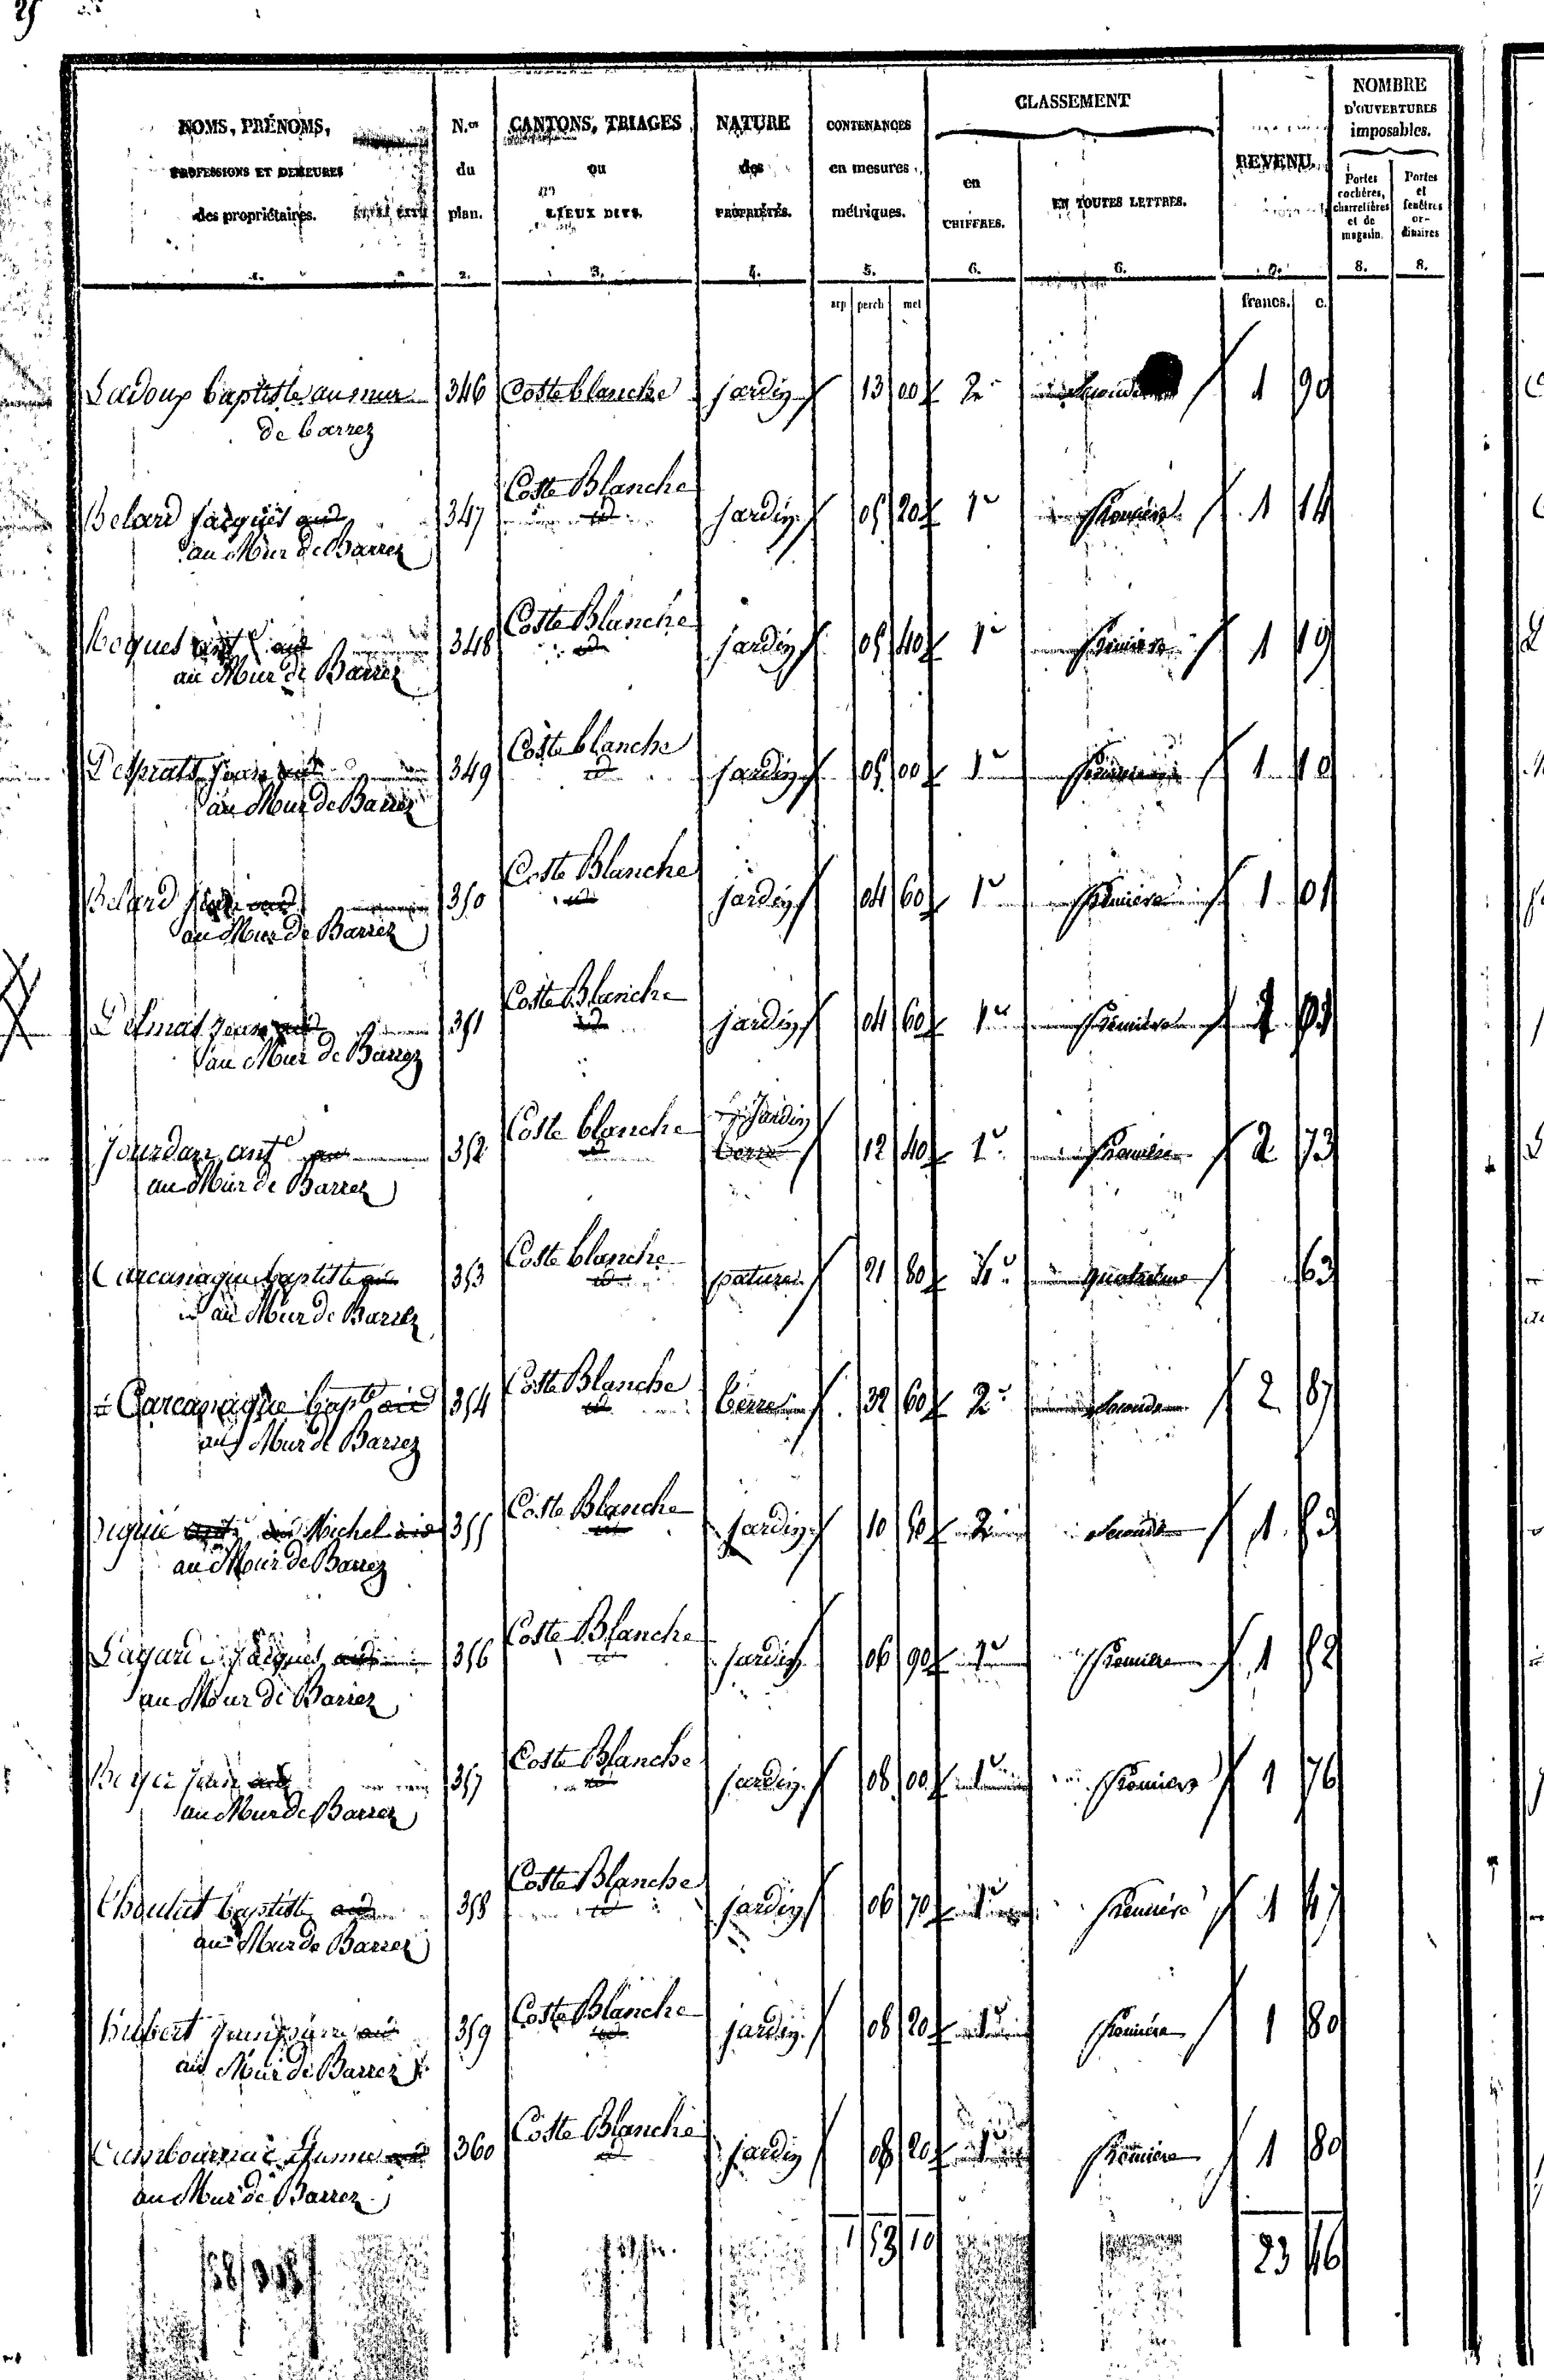 25
NOMS, PRÉNOMS,
PROFESSIONS ET DEMEURES
des propriétaires.
1.
N.os
du
plan.
2.
CANTONS, TRIAGES
ou
LIEUX DITS.
3.
NATURE
des
PROPRIÉTÉS.
4.
CONTENANCES
en mesures
métriques.
5.
CLASSEMENT
en
CHIFFRES.
6.
EN TOUTES LETTRES.
6.
REVENU.
7.
NOMBRE
D'OUVERTURES
imposables.
Portes
cochères,
charretières
et de
magasin.
8.
Portes
et
fenêtres
or-
dinaires
8.
arp perch met francs. c.
Ladoux baptiste au mur 346 Coste blanche jardin 13 00 2e Seconde 1 90
de barrez
Coste Blanche
Belard Jacques aud 347 id jardin 05 20 1e Première 1 14
au Mur de Barrez
Coste Blanche
Roques ant aud 348 id jardin 05 40 1e Première 1 19
au Mur de Barrez
Coste blanche
Desprats Jean aud 349 id jardin 05 00 1e Première 1 10
au Mur de Barrez
Coste Blanche
Belard aud 350 id jardin 04 60 1e Première 1 01
au Mur de Barrez
Coste Blanche
Delmas Jean aud 351 id jardin 04 60 1e Première 1 01
au Mur de Barrez
Coste blanche Jardin
Jourdan ant.e aud 352 id terre 12 40 1e Première 2 73
au Mur de Barrez
Coste blanche
Carcanague baptiste aud 353 id pature 21 80 4e quatrième 63
au Mur de Barrez
Coste Blanche
Carcanague bapte aud 354 id terre 32 60 2e Seconde 2 87
au Mur de Barrez
Coste Blanche
Michel aud 355 id jardin 10 50 2e Seconde 1 53
au Mur de Barrez
Coste Blanche
Jacques aud 356 id jardin 06 90 1e Première 1 52
au Mur de Barrez
Coste Blanche
Jean aud 357 id jardin 08 00 1e Première 1 76
au Mur de Barrez
Coste Blanche
baptiste aud 358 id jardin 06 70 1e Première 1 47
au Mur de Barrez
Coste Blanche
aud 359 id jardin 08 20 1e Première 1 80
au Mur de Barrez
Coste Blanche
aud 360 id jardin 08 20 1e Première 1 80
au Mur de Barrez
1 53 10 23 46